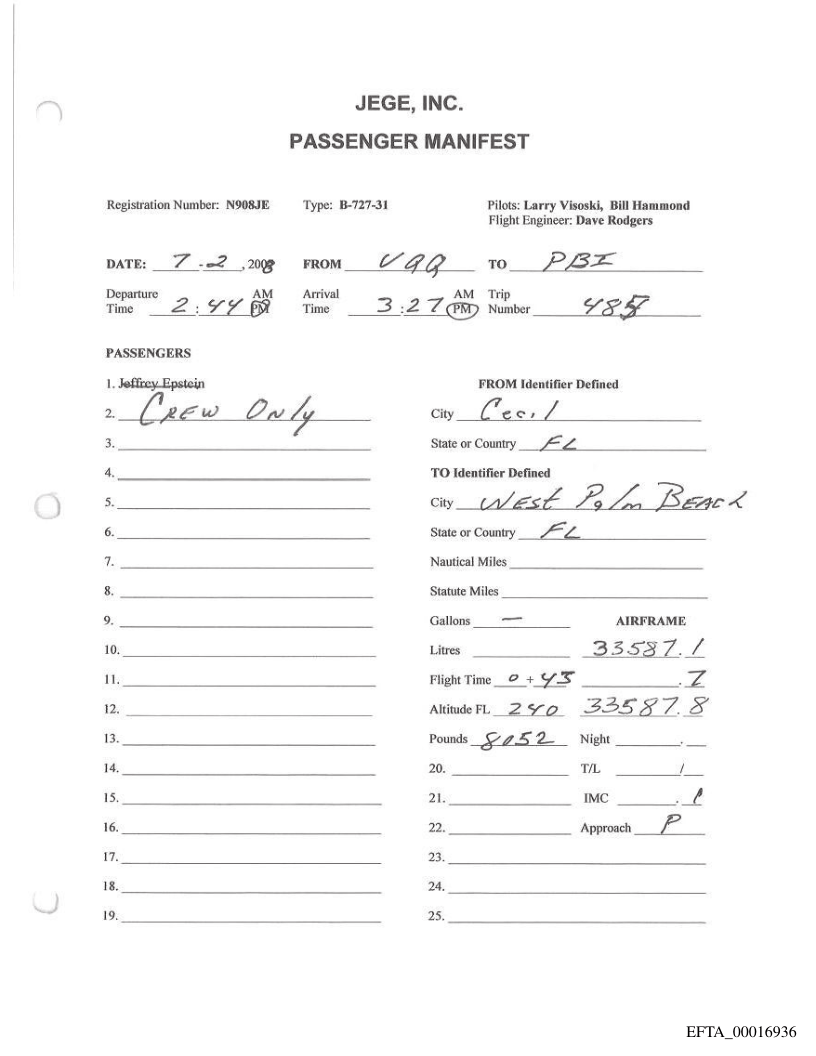 JEGE, INC.
PASSENGER MANIFEST
Registration Number: N908JE Type: B-727-31 Pilots: Larry Visoski, Bill Hammond
Flight Engineer: Dave Rodgers
DATE: 7-2, 2008 FROM VQQ TO PBI
Departure Time 2:44 AM PM Arrival Time 3:27 AM PM Trip Number 485
PASSENGERS
1. Jeffrey Epstein FROM Identifier Defined
2. CREW ONLY City Cecil
3. State or Country FL
4. TO Identifier Defined
5. City WEST Palm BEACH
6. State or Country FL
7. Nautical Miles
8. Statute Miles
9. Gallons — AIRFRAME
10. Litres 33587.1
11. Flight Time 0 + 43 .7
12. Altitude FL 240 33587.8
13. Pounds 8052 Night .
14. 20. T/L /
15. 21. IMC .1
16. 22. Approach P
17. 23.
18. 24.
19. 25.
EFTA_00016936